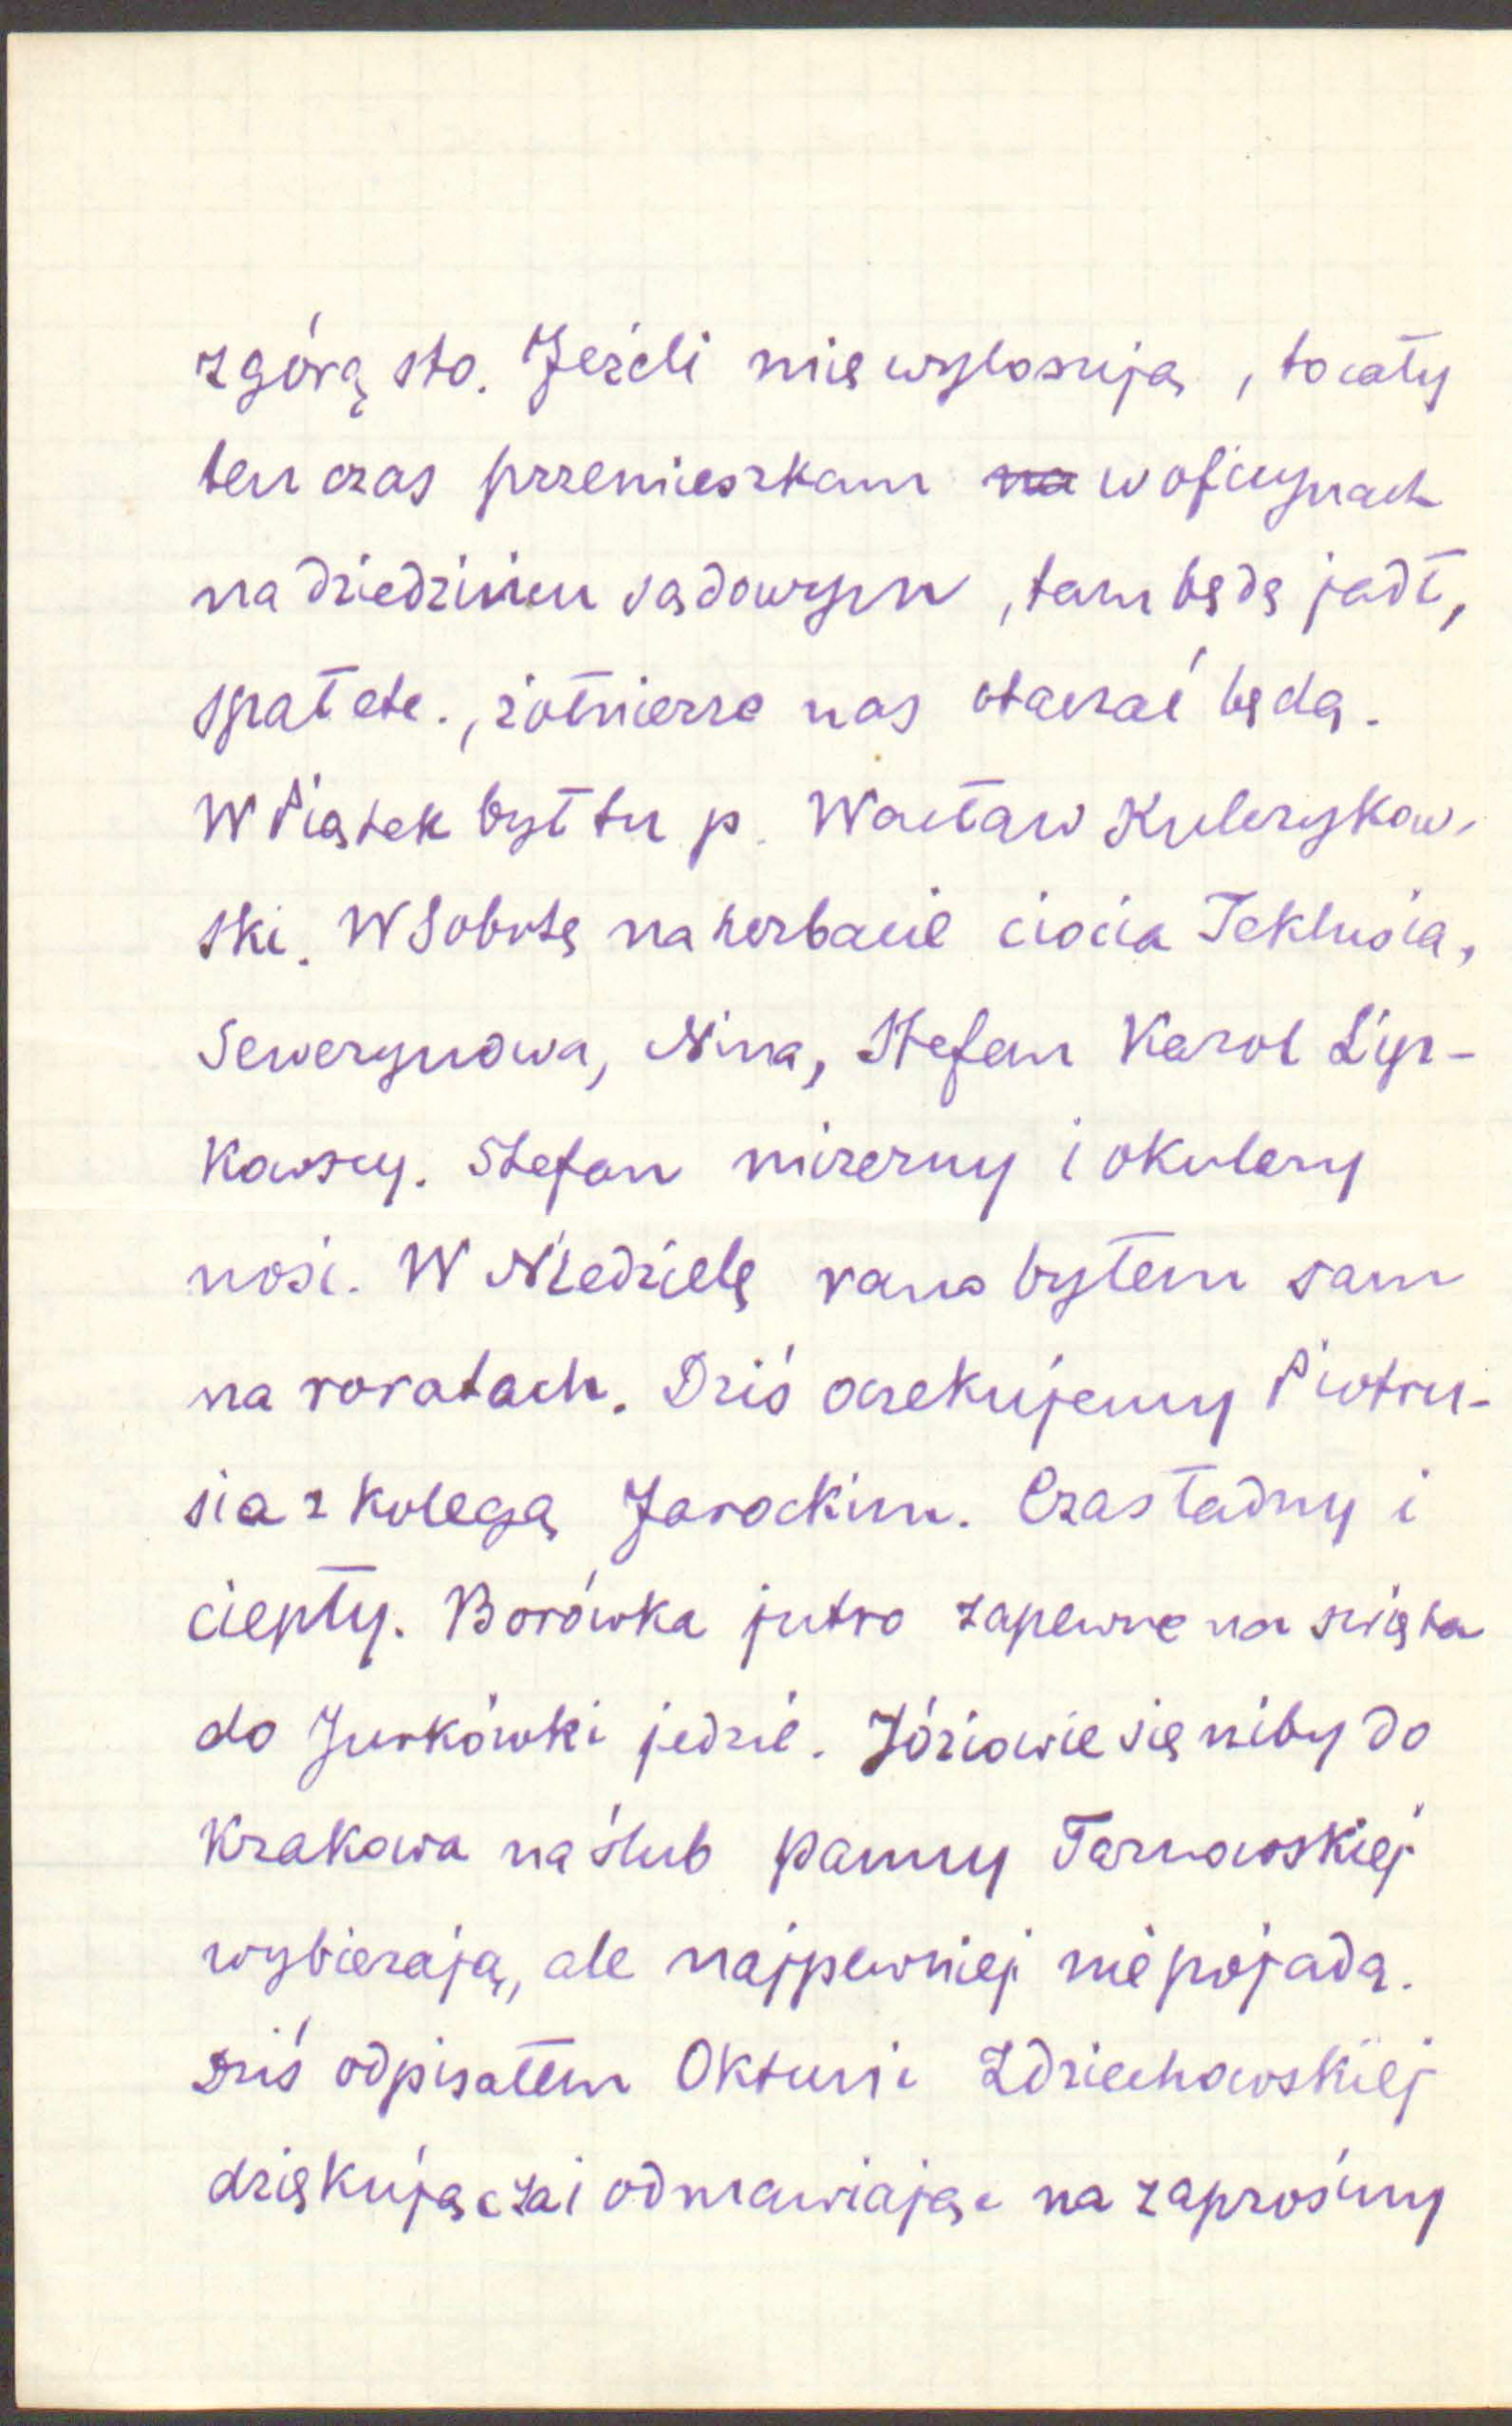 zgórą sto. Jeźeli mię wylosują, to cały
ten czas przemieszkam na w oficynach
na dziedzińcu sądowym, tam będę jadł,
spał etc., żołnierze nas otaczać będą.
W Piątek był tu p. Wacław Kulczykow-
ski. W Sobotę na herbacie ciocia Teklusia,
Sewerynowa, Nina, Stefan Karol Lip-
kowscy. Stefan mizerny i okulary
nosi. W Niedzielę rano byłem sam
na roratach. Dziś oczekujemy Piotru-
sia z kolegą Jarockim. Czas ładny i
ciepły. Borówka jutro zapewne na święta
do Jurkówki jedzie. Józiowie się niby do
Krakowa na ślub panny Tarnowskiej
wybierają, ale najpewniej nie pojadą.
Dziś odpisałem Oktuni Zdziechowskiej
dziękując za i odmawiając na zaprośiny